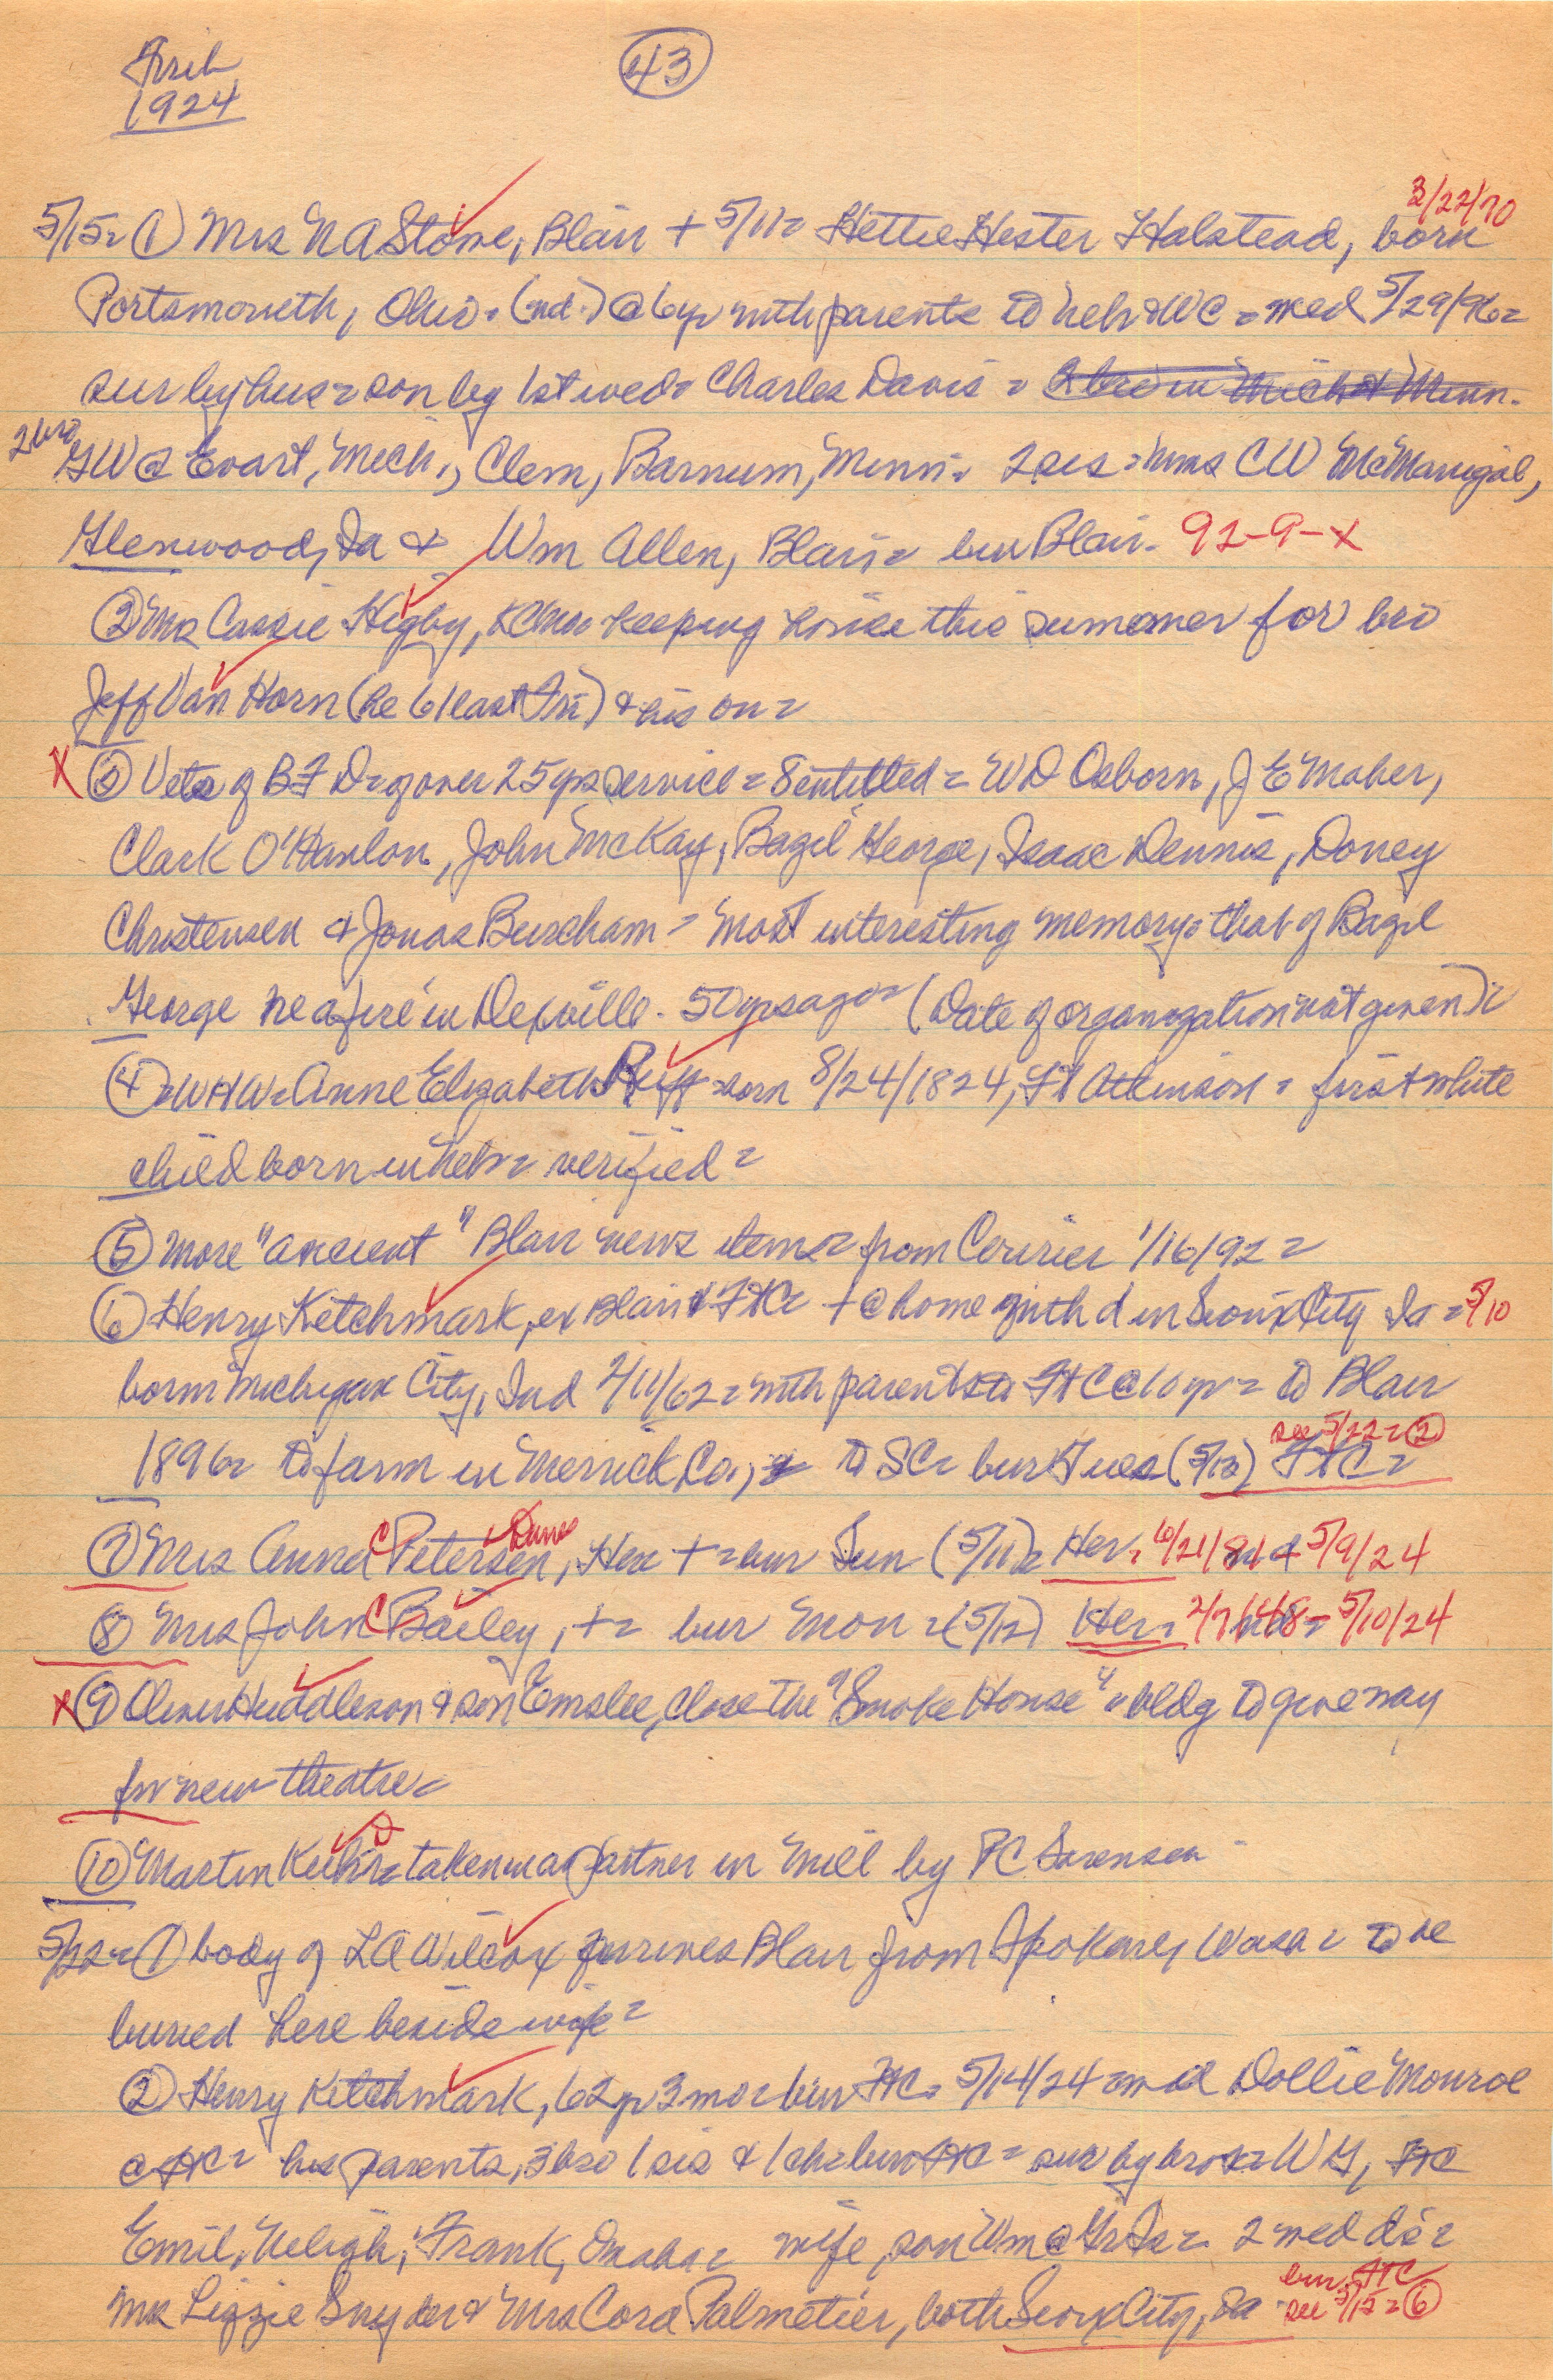 April
1924
43
3/22/70
5/15= ① Mrs N A Stowe, Blair + 5/11= Hettie Hester Halstead, born
Portsmoueth, Ohio. (nd.) @ 6yr with parents to Neb & WC = wed 5/29/96=
sur by hus = son by 1st wed = Charles Davis = 2 bro in Mich & Minn.
2 bro
GW @ Evart, Mich., Clem, Barnum, Minn = 2 sis = mms CW McManigal,
Glenwood, Ia & Wm Allen, Blair = bur Blair. 92-9-x
② Mrs Cassie Higby, KCMo keeping house this summer for bro
Jeff Van Horn (he 61 last Fri) & his son =
X ③ Vets of BFD = of over 25 yrs service = 8 entitled = WD Osborn, J E Maher,
Clark O'Hanlon, John McKay, Bazil George, Isaac Dennis, Doney
Christensen & Jonas Burcham = most interesting memory = that of Bazil
George re a fire in Dexville. 50 yrs ago = (Date of organization not given) =
④ = WHW = Anne Elizabeth Reiff = born 8/24/1824, Ft Atkinson = first white
child born in Neb = verified =
⑤ More "ancient" Blair news items = from Courier 1/16/92 =
⑥ Henry Ketchmark, ex Blair & FtC = + @ home with d in Sioux City Ia = 5/10
born Michigan City, Ind 2/11/62 = with parents to FtC @ 10 yr = to Blair
see 5/22 = ②
1896 = to farm in Merrick Co., to SC = bur Tues (5/13) FtC =
⑦ Mrs Anna C Petersen, Her + = bur Sun (5/11) = Her = 6/21/84 & 5/9/24
⑧ Mrs John C Bailey, + = bur Mon = (5/12) Her = 2/7/48 = 5/10/24
X ⑨ Oliver Huddleson & son Emslee, close the "Smoke House" = bldg to give way
for new theatre =
⑩ Martin Kuhr = taken in as partner in mill by PC Sorensen
5/22 = ① body of L A Wilcox arrives Blair from Spokane, Wash = to be
buried here beside wife =
② Henry Ketchmark, 62 yr 3 mo = bur FtC = 5/14/24 = md Dollie Monroe
@ FtC = his parents, 3 bro 1 sis & 1 ch = bur FtC = sur by bros = W G, FtC
Emil, Neligh, Frank, Omaha = wife, son Wm @ = 2 wed d's =
bur FtC
Mrs Lizzie Snyder & Mrs Cora Palmetier, both Sioux City, Ia see 5/15 = ⑥